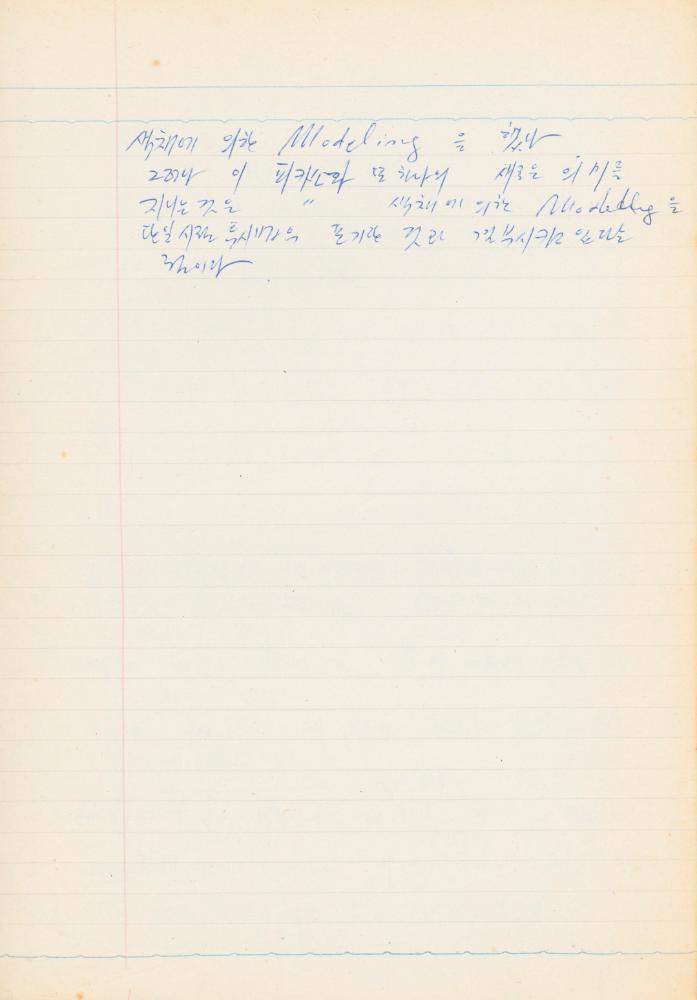 색채에 의한 Modeling 을 했다
그러나 이 피카소와 또 하나의 새로운 의미를
지니는 것은 〃 색채에 의한 Modeling 을
단일시점 투시법의 포기라는 것과 결부시키고 있다는
점이다